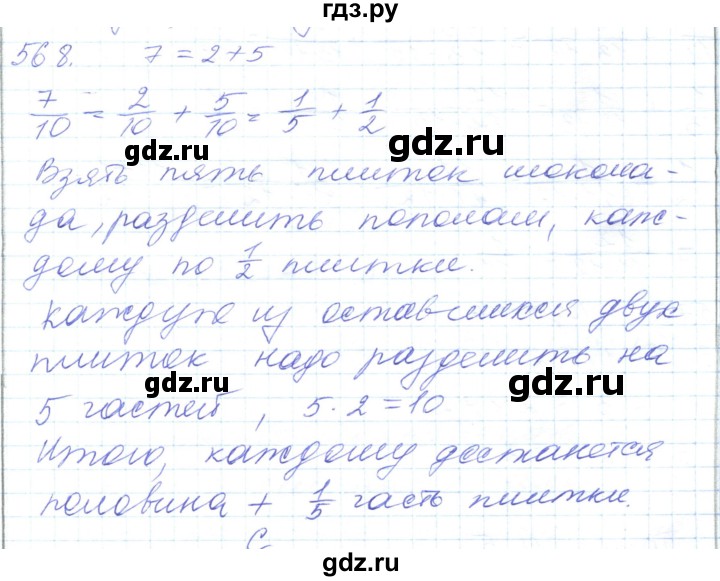 гдз.ру
568. 7 = 2 + 5
7/10 = 2/10 + 5/10 = 1/5 + 1/2
gdz.ru gdz.ru
Взять пять плиток шокола-
да, разделить пополам, каж-
gdz.ru
дому по 1/2 плитки.
Каждую из оставшихся двух
плиток надо разделить на
gdz.ru gdz.ru
5 частей, 5 · 2 = 10
Итого, каждому достанется
gdz.ru
половина + 1/5 часть плитки.
gdz.ru